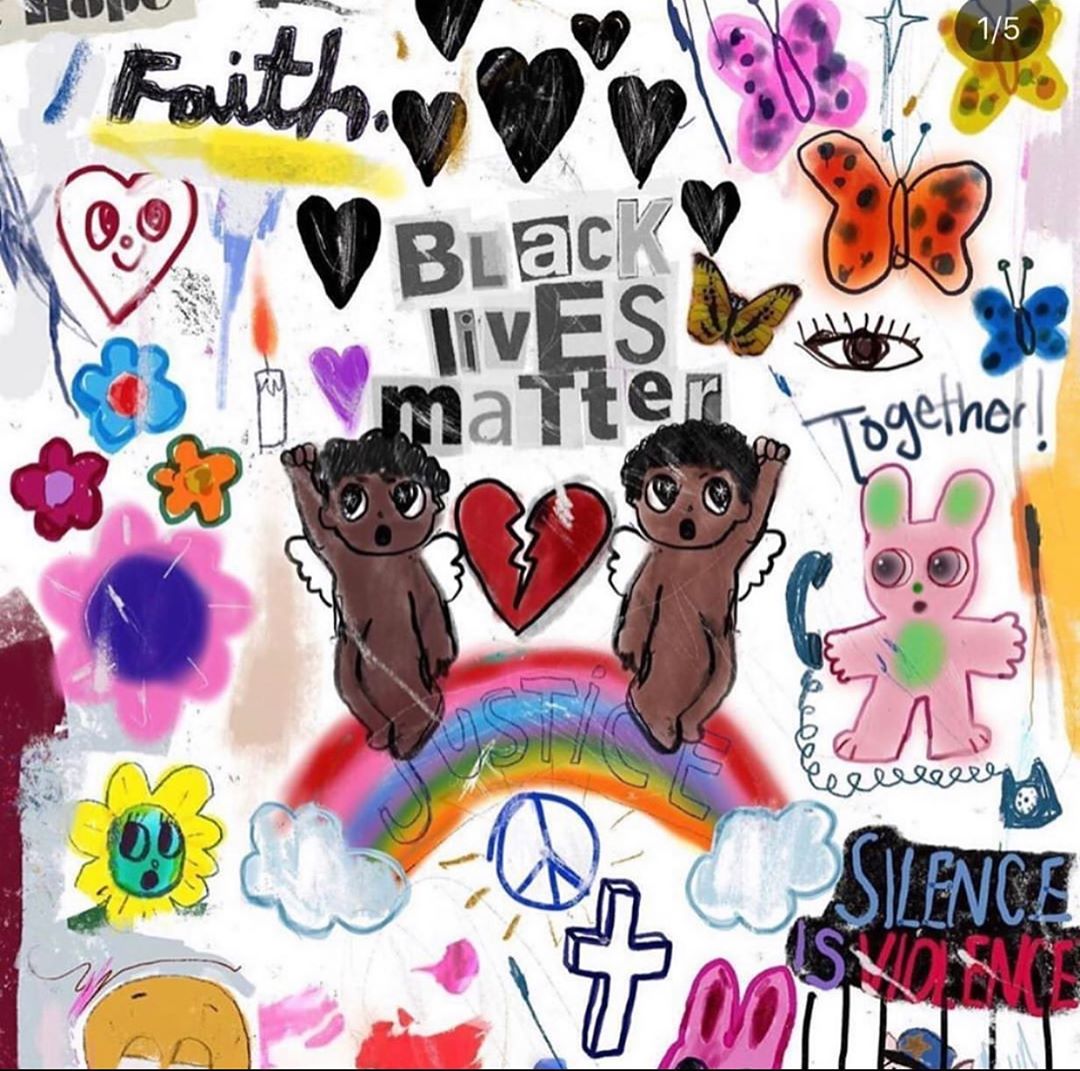 Hope
1/5
Faith.
BLacK
livES
maTter
Together!
JUSTiCE
SILENCE
IS VIOLENCE